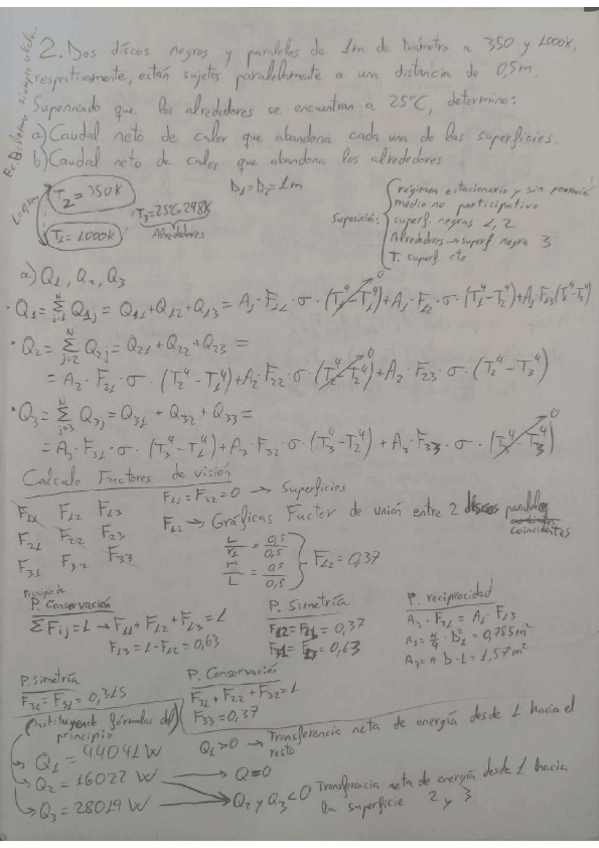 2. Dos discos negros y paralelos de 1m de Diámetro a 350 y 1000K,
respectivamente, están sujetos paralelamente a una distancia de 0,5m.
Suponiendo que los alrededores se encuentran a 25°C, determine:
a) Caudal neto de calor que abandona cada una de las superficies.
b) Caudal neto de calor que abandona los alrededores
L=0,5m
T₂=350K
T₁=1000K
T₃=25°C=298K
Alrededores
D₁=D₂=1m
Suposición:
régimen estacionario y sin
medio no participativo
superf. negras 1, 2
Alrededores → superf negra 3
T. superf cte
a) Q₁, Q₂, Q₃
• Q₁ = Σ Q₁ⱼ = Q₁₁+Q₁₂+Q₁₃ = A₁·F₁₁·σ·(T₁⁴-T₁⁴)+A₁·F₁₂·σ·(T₁⁴-T₂⁴)+A₁·F₁₃(T₁⁴-T₃⁴)
• Q₂ = Σ Q₂ⱼ = Q₂₁+Q₂₂+Q₂₃ =
= A₂·F₂₁·σ·(T₂⁴-T₁⁴)+A₂·F₂₂·σ·(T₂⁴-T₂⁴)+A₂·F₂₃·σ·(T₂⁴-T₃⁴)
• Q₃ = Σ Q₃ⱼ = Q₃₁+Q₃₂+Q₃₃ =
= A₃·F₃₁·σ·(T₃⁴-T₁⁴)+A₃·F₃₂·σ·(T₃⁴-T₂⁴)+A₃·F₃₃·σ·(T₃⁴-T₃⁴)
Calculo Factores de visión
F₁₁ F₁₂ F₁₃
F₂₁ F₂₂ F₂₃
F₃₁ F₃₂ F₃₃
F₁₁=F₂₂=0 → Superficies
F₁₂ → Gráficas Factor de unión entre 2 discos paralelos
coincidentes
L/r₁ = 0,5/0,5
= 0,5/0,5
F₁₂=0,37
Principio de
P. Conservación
ΣFij=1 → F₁₁+F₁₂+F₁₃=1
F₁₃=1-F₁₂=0,63
P. Simetría
F₁₂=F₂₁=0,37
=0,63
P. reciprocidad
A₃·F₃₁=A₁·F₁₃
A₁=π/4·D₁²=0,785m²
A₃=π·D·L=1,57m²
P. simetría
F₃₂=F₃₁=0,315
P. Conservación
F₃₁+F₂₂+F₃₂=1
F₃₃=0,37
Sustituyendo fórmulas del
principio
→ Q₁=44041W
→ Q₂=16022W
→ Q₃=28019W
Q₁>0 → Transferencia neta de energía desde 1 hacia el
resto
→ Q=0
→ Q₂ y Q₃<0 Transferencia neta de energía desde 1 hacia
la superficie 2 y 3.